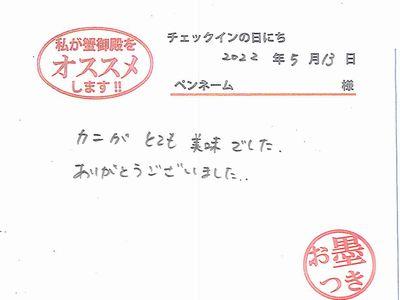 私が蟹御殿を
オススメ
します!!
チェックインの日にち
2022 年 5 月 13 日
ペンネーム 様
カニが とても 美味 でした.
ありがとうございました..
お墨
つき